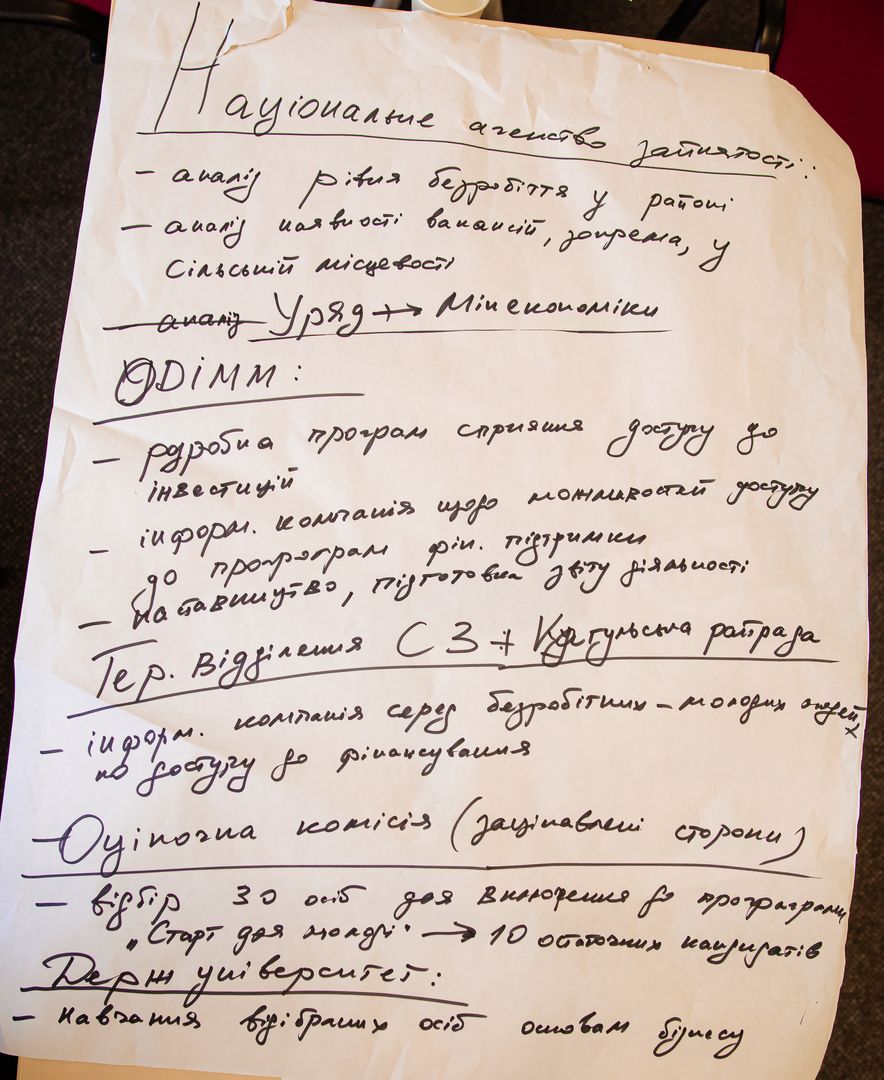 Національне агенство зайнятості:
- аналіз рівня безробіття у районі
- аналіз наявності вакансій, зокрема, у
сільській місцевості
- аналіз Уряд → Мінекономіки
ОДІММ:
- розробка програм сприяння доступу до
інвестицій
- інформ. компанія щодо можливостей доступу
до програм фін. підтримки
- наставництво, підготовка звіту діяльності
Тер. відділення СЗ + Кагульська райрада
- інформ. компанія серед безробітних - молодих людей,
по доступу до фінансування
- Оціночна комісія (зацікавлені сторони)
- відбір 30 осіб для включення до програми
"Старт для молоді" → 10 остаточних кандидатів
Держ університет:
- навчання відібраних осіб основам бізнесу